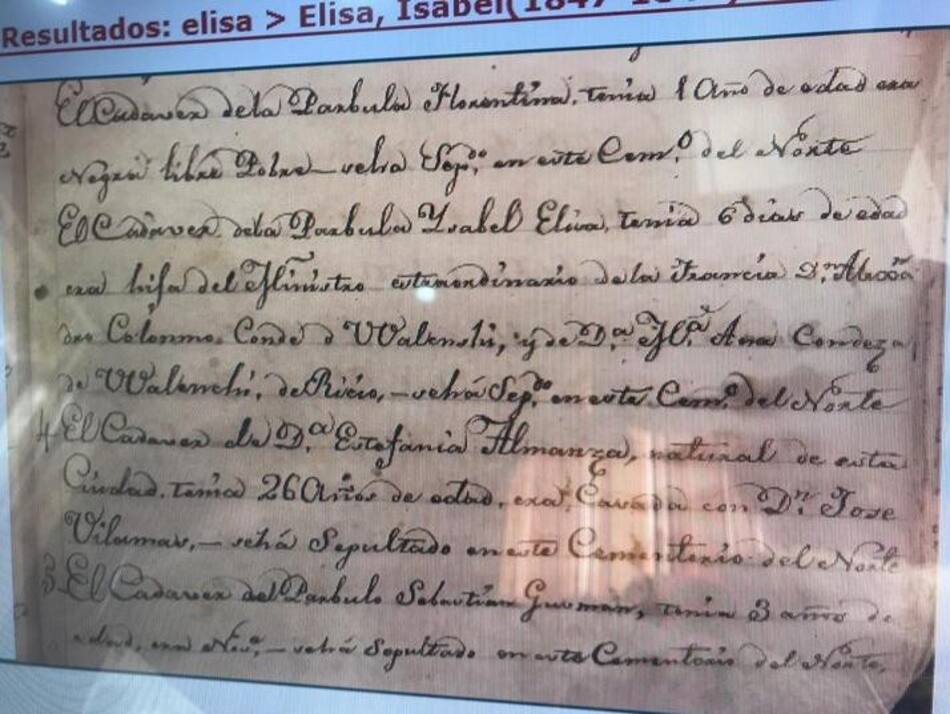 Resultados: elisa > Elisa, Isabel(1847-
El Cadaver dela Parbula Florentina, tenia 1 Año de edad era
Negra libre Pobre – se ha Sepdo. en este Cemo. del Norte
El Cadaver dela Parbula Ysabel Elisa, tenia 6 dias de edad
era hija del Ministro extraordinario de la Francia Dn.
dro Colonno, Conde d VValenski, y de Da. Ma. Ana Condeza
de VValenchi, de Ricio, – se há Sepdo. en este Cemo. del Norte
4 El Cadaver de Da. Estefania Almanza, natural de esta
Ciudad, tenia 26 Años de edad, era Casada con Dn. Jose
Vilamar, – se há Sepultado en este Cementerio del Norte
3 El Cadaver del Parbulo Sebastian Gusman, tenia 3 años de
edad, era – se há Sepultado en este Cementerio del Norte,